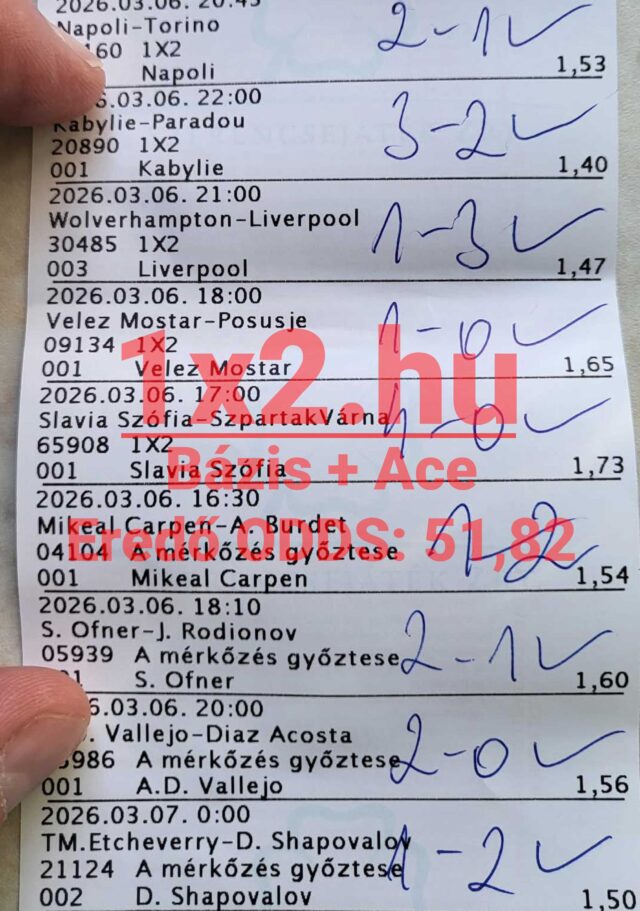 2026.03.06. 20:45
Napoli-Torino 2-1 ✓
160 1X2
Napoli 1,53
6.03.06. 22:00
Kabylie-Paradou 3-2 ✓
20890 1X2
001 Kabylie 1,40
2026.03.06. 21:00
Wolverhampton-Liverpool 1-3 ✓
30485 1X2
003 Liverpool 1,47
2026.03.06. 18:00
Velez Mostar-Posusje 1-0 ✓
09134 1X2
001 Velez Mostar 1,65
1x2.hu
2026.03.06. 17:00
Slavia Szófia-SzpartakVárna 1-0 ✓
65908 1X2
001 Slavia Szófia 1,73
Bázis + Ace
2026.03.06. 16:30
Mikeal Carpen-A. Burdet 1-2
Eredő ODDS: 51,82
04104 A mérkőzés győztese
001 Mikeal Carpen 1,54
2026.03.06. 18:10
S. Ofner-J. Rodionov
05939 A mérkőzés győztese 2-1 ✓
01 S. Ofner 1,60
6.03.06. 20:00
. Vallejo-Diaz Acosta
986 A mérkőzés győztese 2-0 ✓
001 A.D. Vallejo 1,56
2026.03.07. 0:00
TM.Etcheverry-D. Shapovalov 1-2 ✓
21124 A mérkőzés győztese
002 D. Shapovalov 1,50